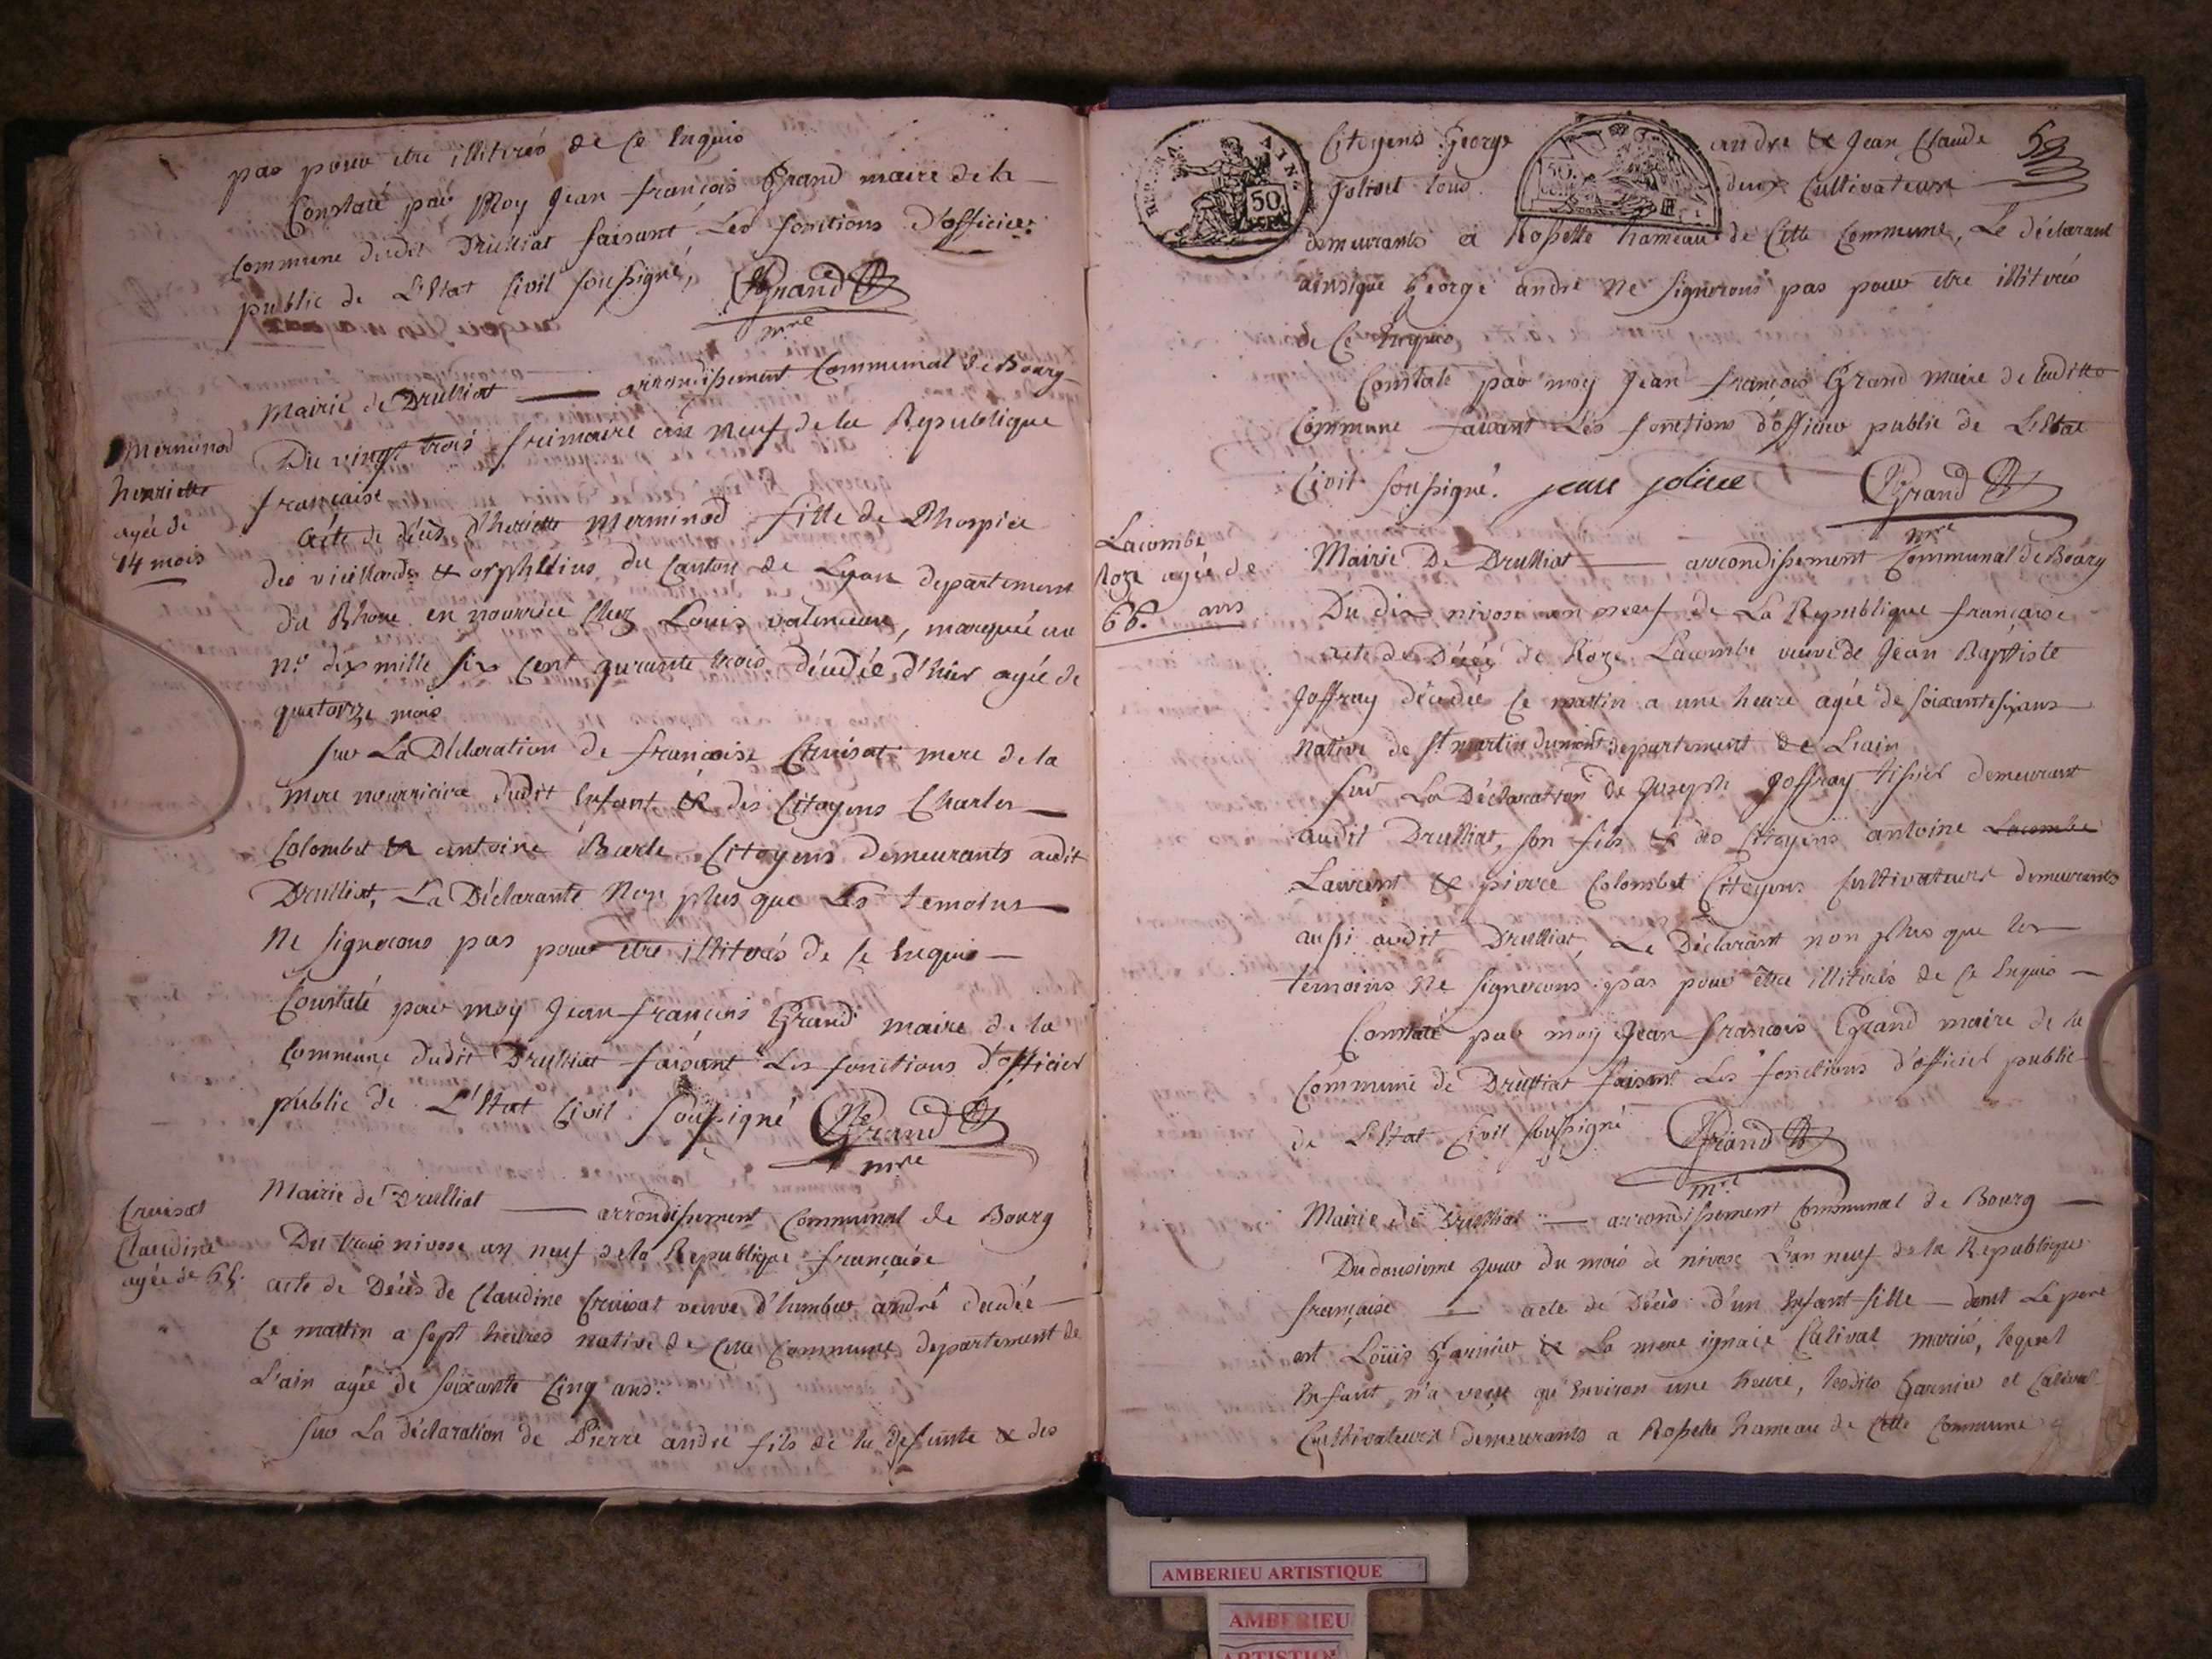 pas pour etre illitirés de Ce Enquis
Constaté par Moy Jean françois Grand maire de la
Commune dudit Drulliat faisant Les fonctions d'officier
public de L'Etat Civil soussigné, Grand
mre
Mairie de Drulliat arrondissement Communal de Bourg
Merminod
henriette
agée de
14 mois
Du vingt trois frimaire an Neuf de la Republique
française
Acte de décès d'heriette Merminod fille de L'hospice
des vieillards & orphelins du Canton de Lyon departement
du Rhone en nourrice Chez Louis valencieu, marquée au
n.o dix mille six Cent quarante trois décédée d'hier agée de
quatorze mois
sur La Déclaration de françoise Cruisat mere de la
mere nourriciere dudit Enfant & des Citoyens Charles
Colombet & antoine Barle Citoyens demeurants audit
Drulliat, La Déclarante Non plus que Les temoins
Ne signerons pas pour etre illitirés de Ce Enquis
Constaté par moy Jean françois Grand maire de la
Commune dudit Drulliat faisant Les fonctions d'officier
public de L'Etat Civil soussigné Grand
mre
Cruisat
Claudine
agée de 65.
Mairie de Drulliat arrondissement Communal de Bourg
Du trois nivose an neuf de la Republique française
acte de Décès de Claudine Cruisat veuve d'humber andré décédée
Ce mattin a sept heures native de Cette Commune departement de
L'ain agée de soixante Cinq ans.
sur La déclaration de Pierre andré fils de la defunte & des
Citoyens George andre & Jean Claude 59
Jolivet tous deux Cultivateurs
50
50
demeurants a Rossette hameau de Cette Commune, Le déclarant
ainsique George andré Ne signerons pas pour etre illitirés
de Ce Enquis,
Constaté par moy Jean françois Grand Maire de laditte
Commune faisant Les fonctions d'officier public de L'Etat
Civil soussigné. Grand
mre
Lacombe
Roze agée de
66. ans
Mairie De Drulliat arrondissement Communal de Bourg
Du dix nivose an neuf de La Republique française
acte de Décès de Roze Lacombe veuve de Jean Baptiste
Joffray décédée Ce mattin a une heure agée de soixante six ans
Native de St martin dumont departement de L'ain
sur La Déclaration de Joseph Joffray tissier demeurant
audit Drulliat, son fils & des Citoyens antoine Lacombe
Laurent & pierre Colombet Citoyens Cultivateurs demeurants
aussi audit Drulliat, Le Déclarant non plus que les
temoins Ne signerons pas pour être illitirés de Ce Enquis
Constaté par moy Jean françois Grand maire de la
Commune de Drulliat faisant Les fonctions d'officier public
de L'Etat Civil soussigné Grand
mre
Mairie de Drulliat arrondissement Communal de Bourg
Du dousieme jour du mois de nivose L'an neuf de la Republique
française acte de Décès d'un Enfant fille dont Le pere
est Louis Garnier & La mere ignace Calival mariés, lequel
Enfant n'a veçu qu'Environ une heure, lesdits Garnier et Calival
Cultivateurs demeurants a Rossette hameau de Cette Commune
AMBERIEU ARTISTIQUE
AMBERIEU
ARTISTIQ